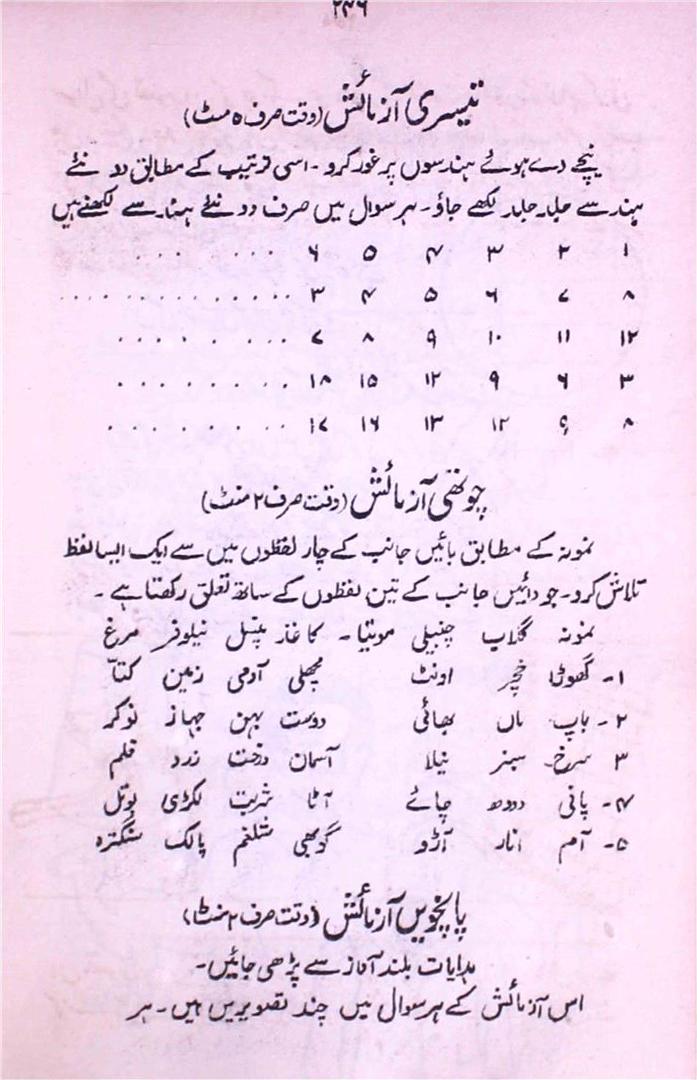 ۲۴۶
تیسری آزمائش (وقت صرف ۵ منٹ)
نیچے دے ہوئے ہندسوں پر غور کرو۔ اسی ترتیب کے مطابق دو نئے
ہندسے جلد جلد لکھے جاؤ۔ ہر سوال میں صرف دو نئے ہندسے لکھنے ہیں
۱ ۲ ۳ ۴ ۵ ۶ . . . . . . . .
۸ ۷ ۶ ۵ ۴ ۳ . . . . . . . . . . . . . .
۱۲ ۱۱ ۱۰ ۹ ۸ ۷ . . . . . . . . .
۳ ۶ ۹ ۱۲ ۱۵ ۱۸ . . . . . . . . .
۸ ۹ ۱۲ ۱۳ ۱۶ ۱۷ . . . . . . . . .
چوتھی آزمائش (وقت صرف ۲ منٹ)
نمونہ کے مطابق بائیں جانب کے چار لفظوں میں سے ایک ایسا لفظ
تلاش کرو۔ جو دائیں جانب کے تین لفظوں کے ساتھ تعلق رکھتا ہے۔
نمونہ گلاب چنبیلی موتیا۔ کاغذ پنسل نیلوفر مرغ
۱۔ گھوڑا خچر اونٹ مچھلی آدمی زمین کتّا
۲۔ باپ ماں بھائی دوست بہن جہاز نوکر
۳ سرخ سبز نیلا آسمان درخت زرد قلم
۴۔ پانی دودھ چائے آٹا شربت لکڑی بوتل
۵۔ آم انار آڑو گوبھی شلغم پالک سنگترہ
پانچویں آزمائش (وقت صرف ۲ منٹ)
ہدایات بلند آواز سے پڑھی جائیں۔
اس آزمائش کے ہر سوال میں چند تصویریں ہیں۔ ہر